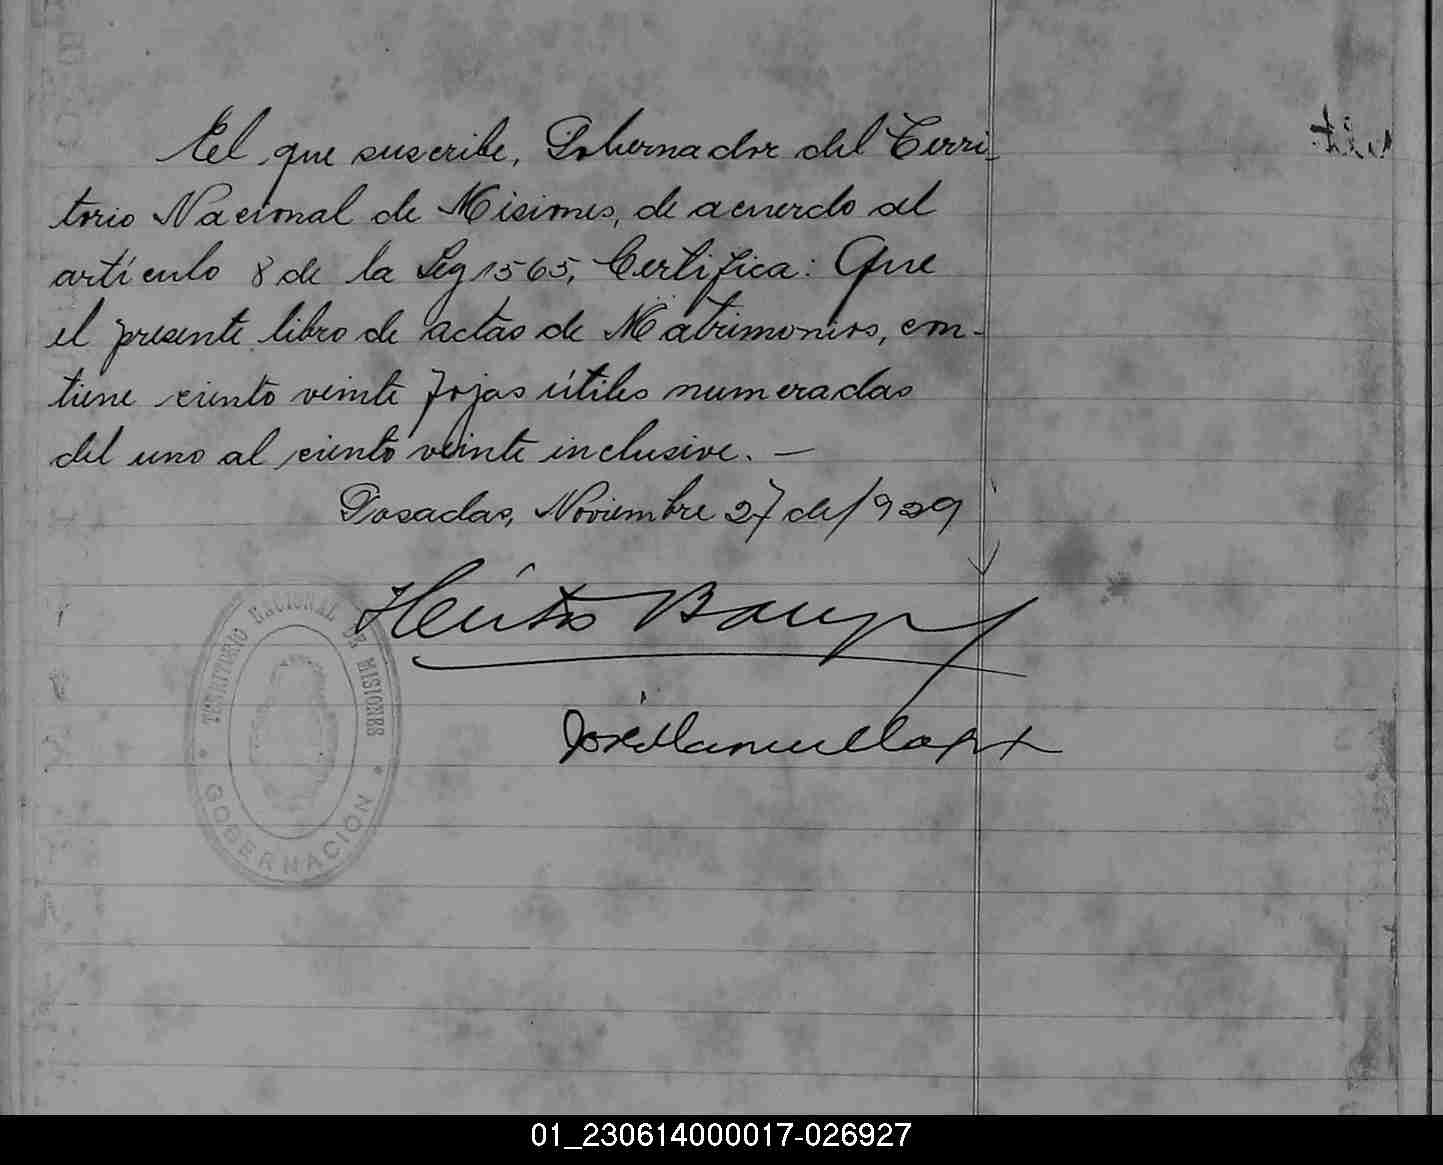 El que suscribe, Gobernador del Terri-
torio Nacional de Misiones, de acuerdo al
artículo 8 de la Ley 1565, Certifica: Que
el presente libro de actas de Matrimonios, con-
tiene ciento veinte fojas útiles numeradas
del uno al ciento veinte inclusive. —
Posadas, Noviembre 27 de 1929
Héctor
José Manuel
TERRITORIO NACIONAL DE MISIONES
GOBERNACIÓN
01_230614000017-026927